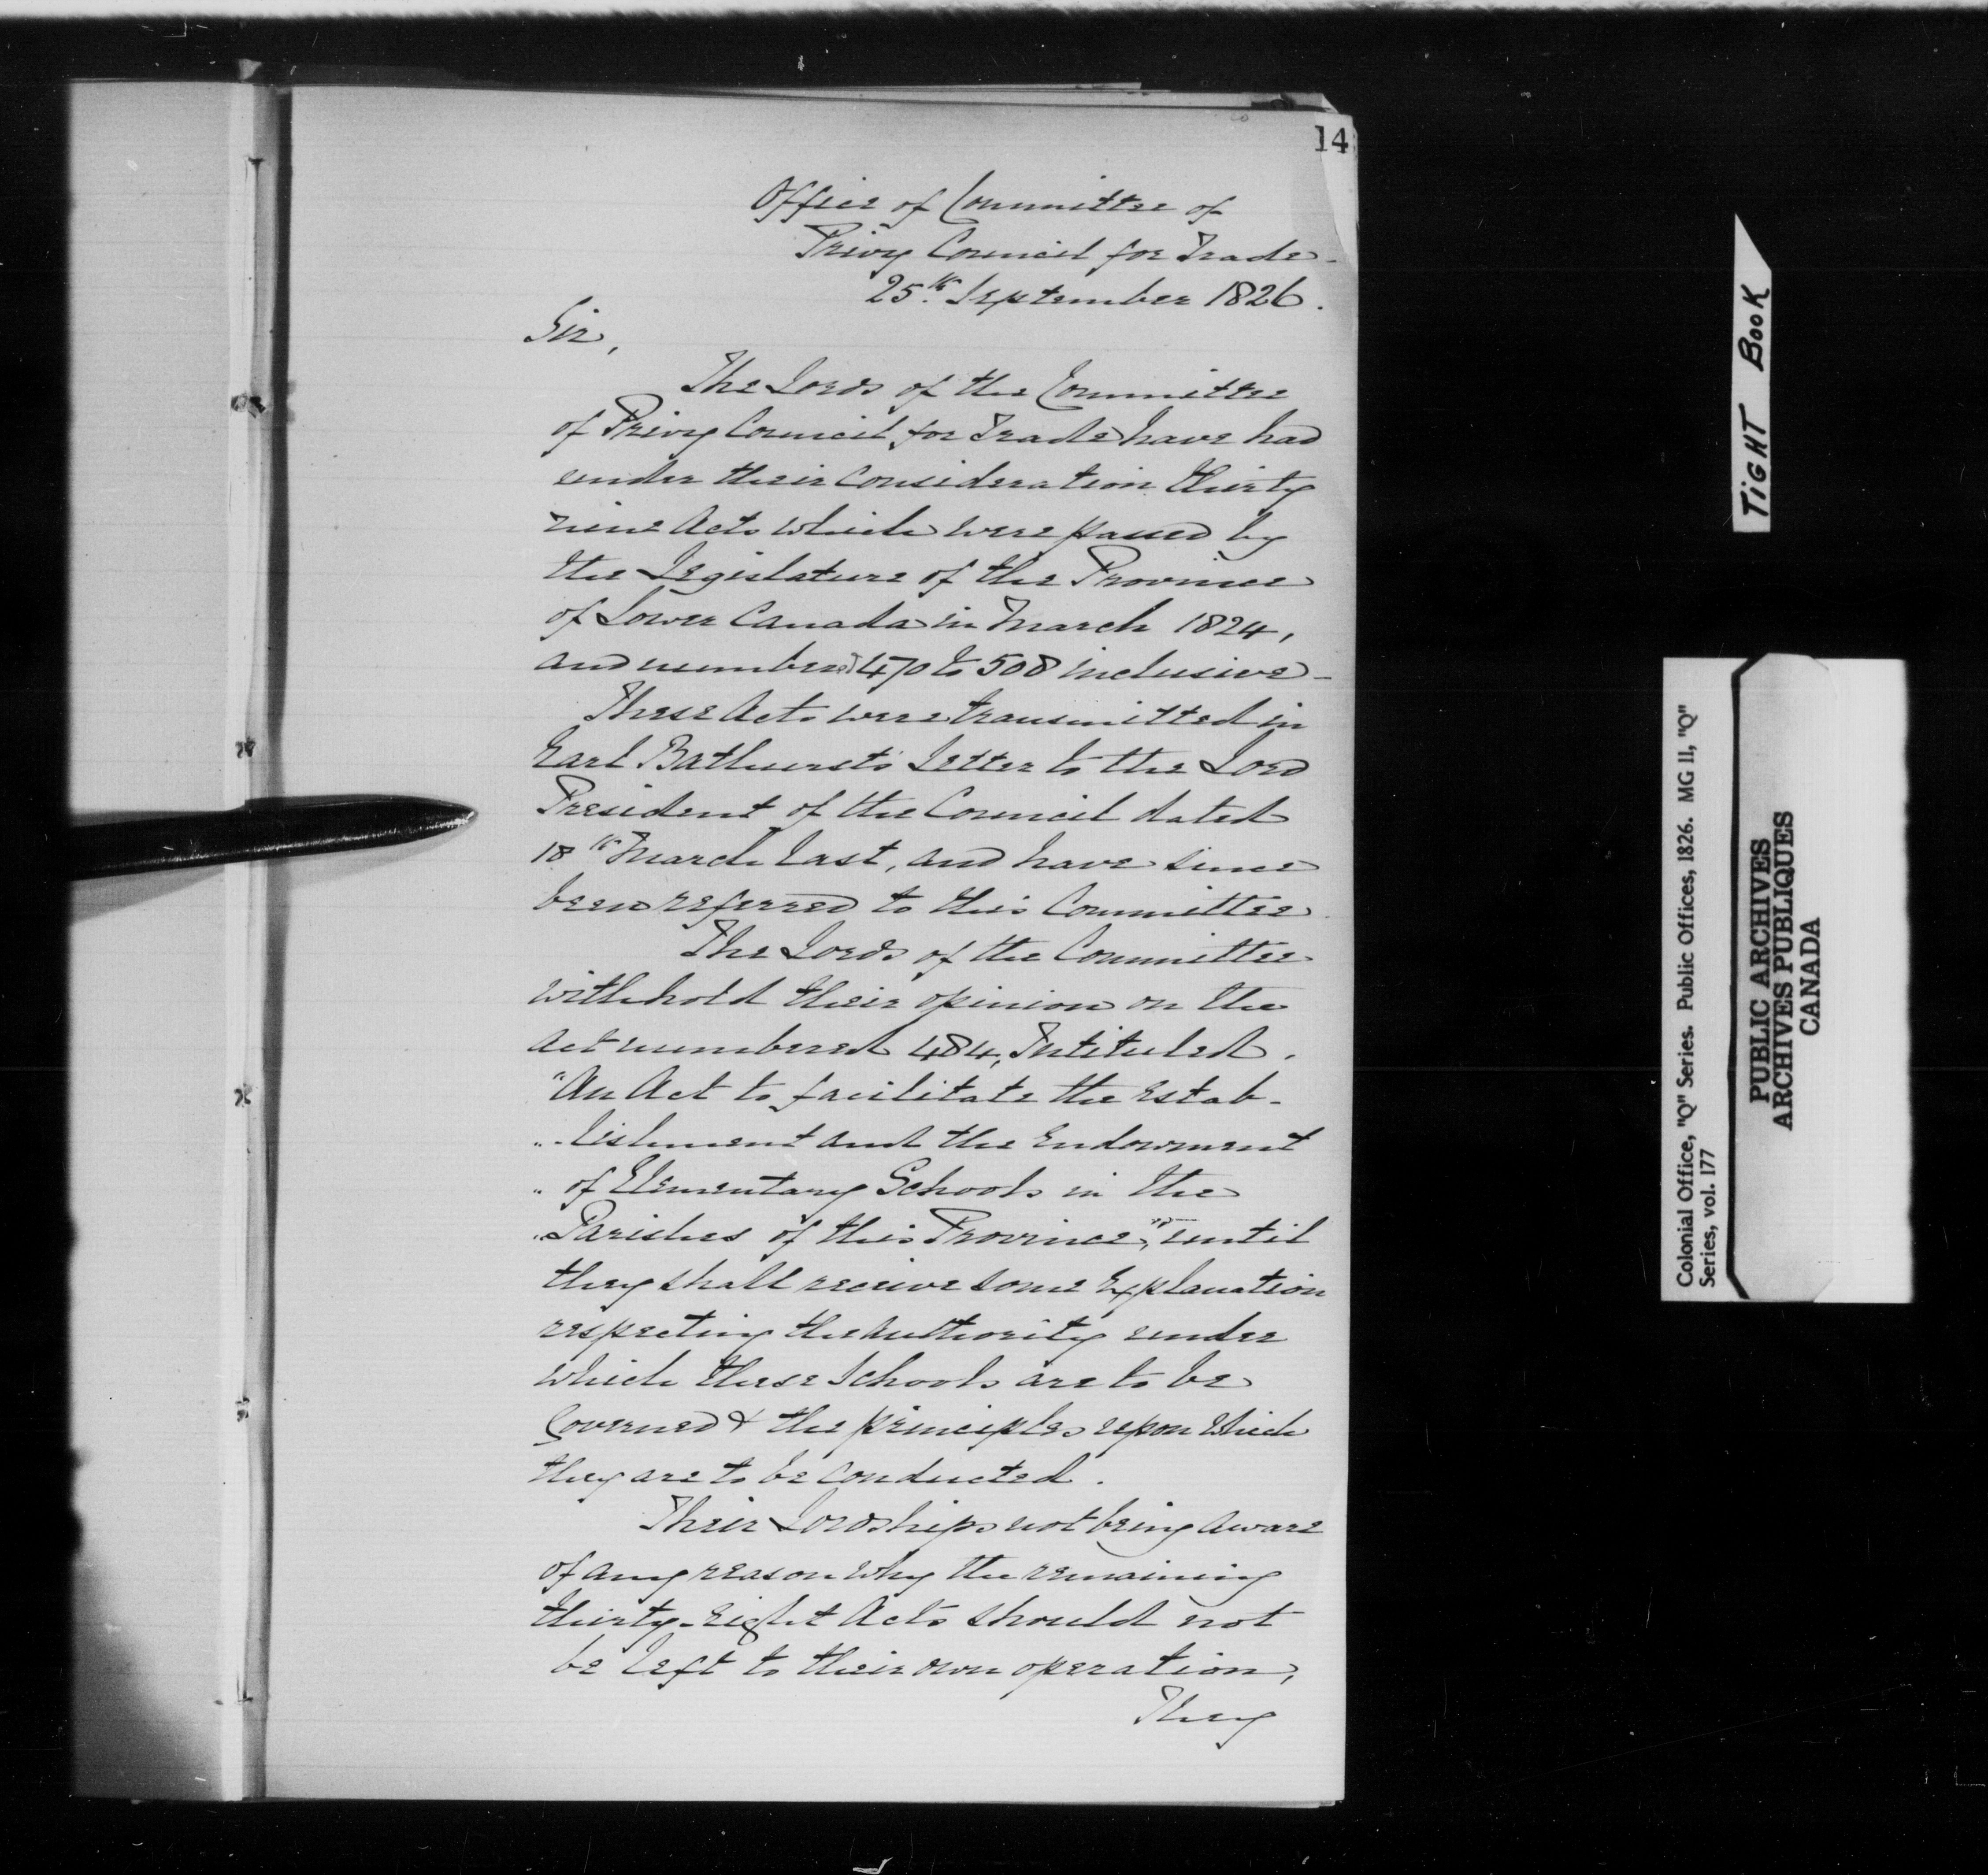 14
Office of Committee of
Privy Council for Trade -
25th September 1826.
Sir,
The Lords of the Committee
of Privy Council for Trade have had
under their consideration thirty
nine Acts which were passed by
the Legislature of the Province
of Lower Canada in March 1824,
and numbered 470 to 508 inclusive -
These Acts were transmitted in
Earl Bathurst's Letter to the Lord
President of the Council dated
18th March last, and have since
been referred to this Committee
The Lords of the Committee
withhold their opinion on the
Act numbered 484, Intituled.
"An Act to facilitate the Estab-
"-lishment and the Endowment
" of Elementary Schools in the
"Parishes of this Province," until
they shall receive some Explanation
respecting the authority under
which these Schools are to be
Governed & the principles upon which
they are to be conducted.
Their Lordships not being aware
of any reason why the remaining
thirty-Eight Acts should not
be left to their own operation,
They
TIGHT BOOK
Colonial Office, "Q" Series. Public Offices, 1826. MG 11, "Q"
Series, vol. 177
PUBLIC ARCHIVES
ARCHIVES PUBLIQUES
CANADA